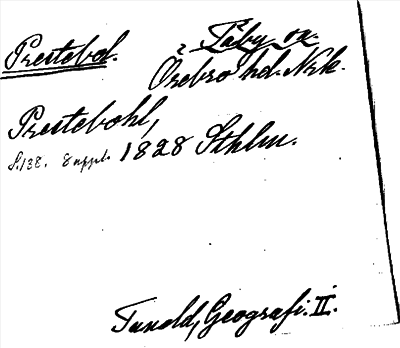 Prestebol. Täby sn.
Örebro hd. Nrk.
Prestebohl,
S. 138. 8 uppl. 1828 Sthlm.
Tuneld, Geografi. II.